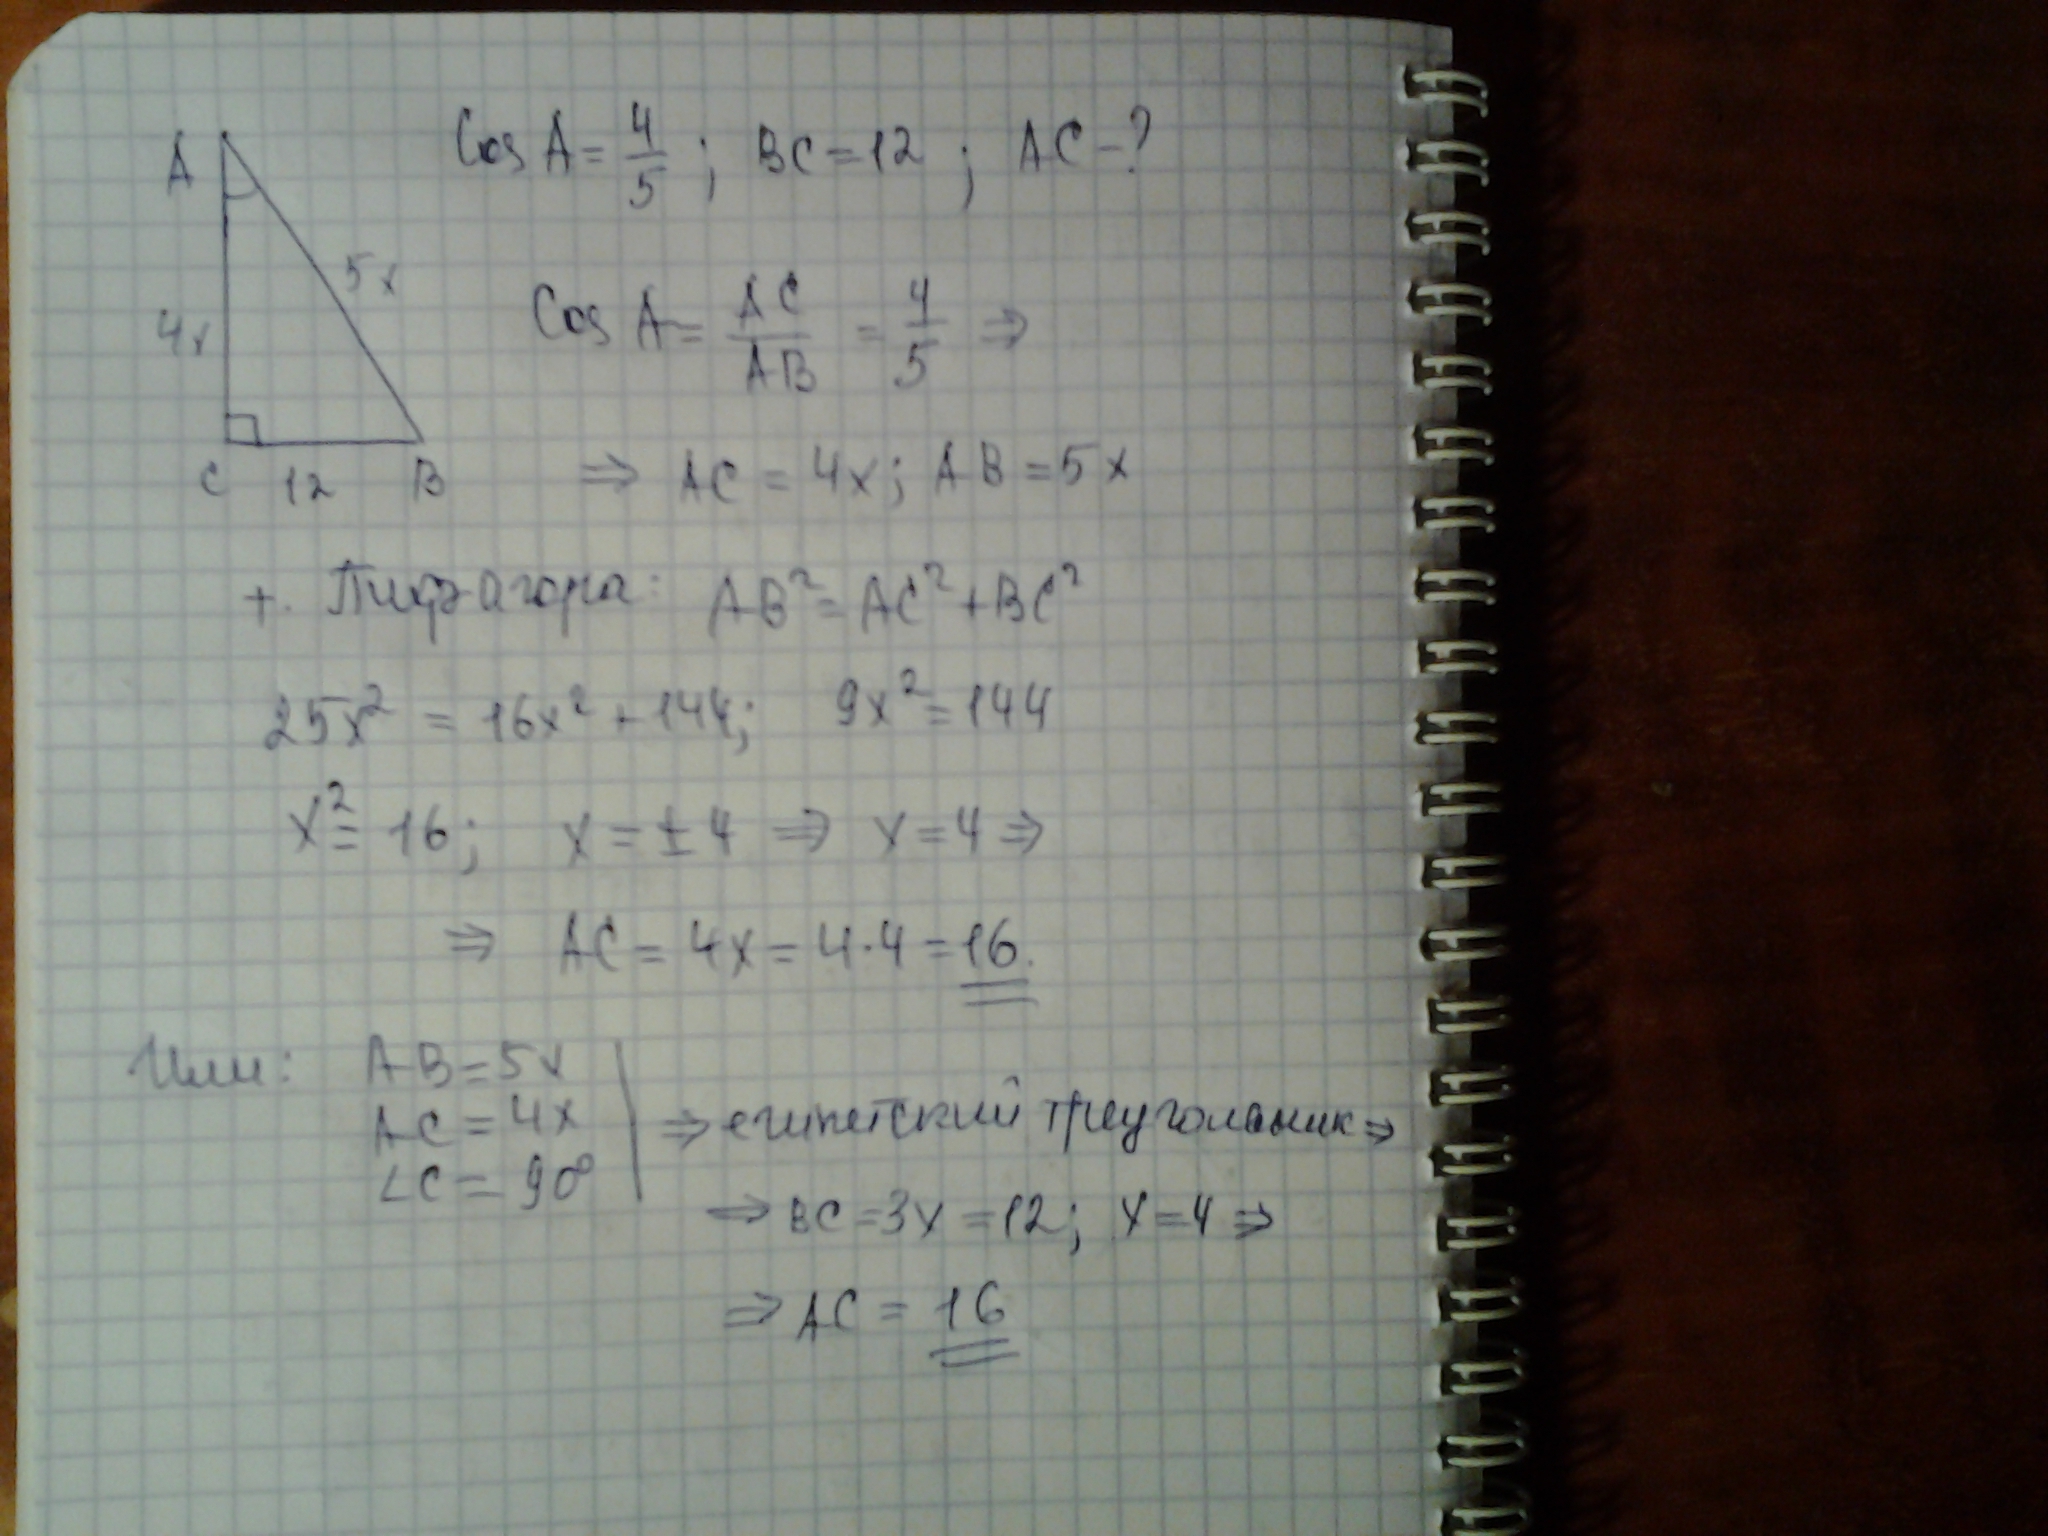 A
5x
4x
C 12 B
Cos A = 4/5 ; BC = 12 ; AC - ?
Cos A = AC/AB = 4/5 ⇒
⇒ AC = 4x; AB = 5x
т. Пифагора: AB² = AC² + BC²
25x² = 16x² + 144; 9x² = 144
x² = 16; x = ±4 ⇒ x = 4 ⇒
⇒ AC = 4x = 4·4 = 16.
Или: AB = 5x
AC = 4x
∠C = 90°
⇒ египетский треугольник ⇒
⇒ BC = 3x = 12; x = 4 ⇒
⇒ AC = 16